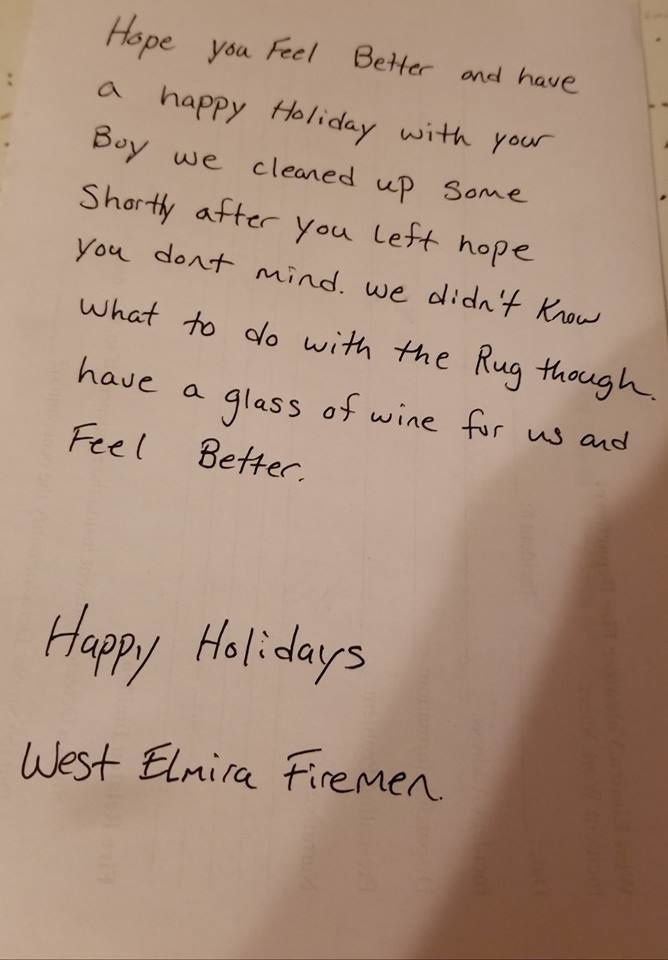 Hope you Feel Better and have
a happy Holiday with your
Boy we cleaned up some
Shortly after you left hope
you dont mind. we didn't know
what to do with the Rug though.
have a glass of wine for us and
Feel Better.
Happy Holidays
West Elmira Firemen.